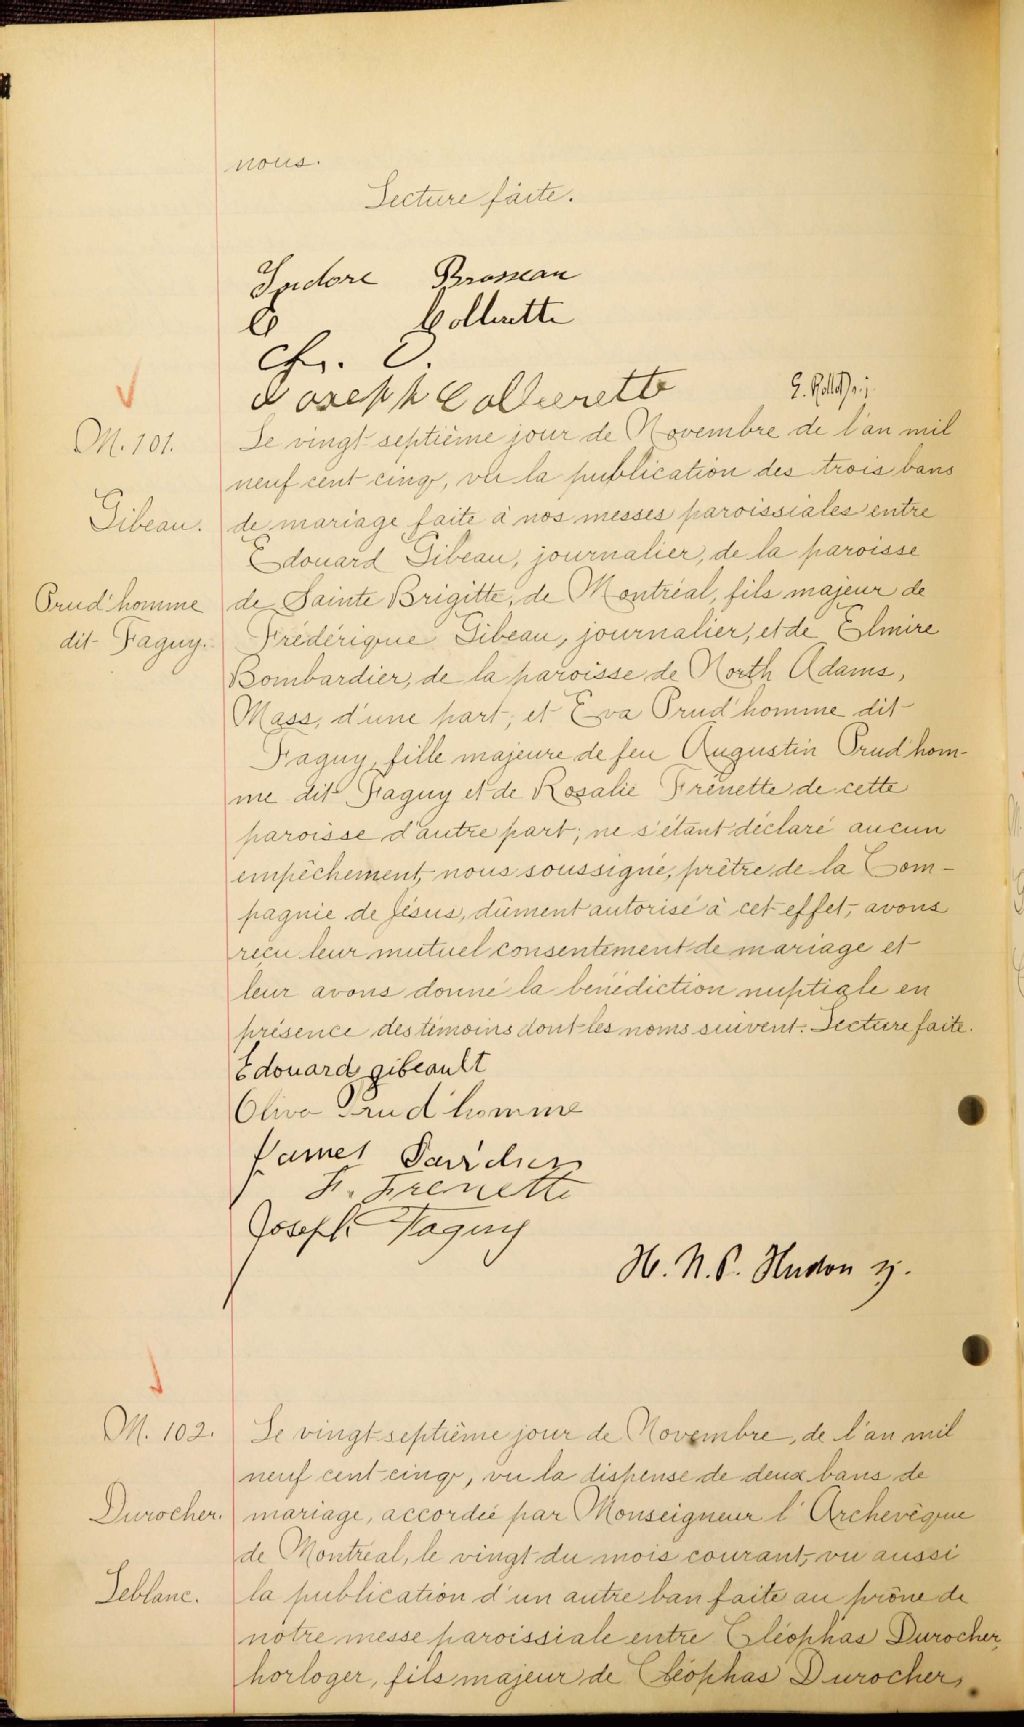 nous.
Lecture faite.
Isidore Brosseau
E Collerette
Chs. O.
Joseph Collerette
E. Rollot s.j.
M. 101.
Gibeau.
Prud'homme
dit Faguy.
Le vingt septième jour de Novembre de l'an mil
neuf cent cinq, vu la publication des trois bans
de mariage faite à nos messes paroissiales entre
Edouard Gibeau, journalier, de la paroisse
de Sainte Brigitte, de Montréal, fils majeur de
Frédérique Gibeau, journalier, et de Elmire
Bombardier, de la paroisse de North Adams,
Mass, d'une part; et Eva Prud'homme dit
Faguy, fille majeure de feu Augustin Prud'hom-
me dit Faguy et de Rosalie Frênette de cette
paroisse d'autre part; ne s'étant déclaré aucun
empêchement, nous soussigné, prêtre de la Com-
pagnie de Jésus, dûment autorisé à cet effet, avons
reçu leur mutuel consentement de mariage et
leur avons donné la bénédiction nuptiale en
présence des témoins dont les noms suivent. Lecture faite.
Edouard gibeault
Oliva Prud'homme
James Davidson
F. Frenette
Joseph Faguy
H. N. P. Hudon sj.
M. 102.
Durocher.
Leblanc.
Le vingt septième jour de Novembre, de l'an mil
neuf cent cinq, vu la dispense de deux bans de
mariage, accordée par Monseigneur l'Archevêque
de Montréal, le vingt du mois courant, vu aussi
la publication d'un autre ban faite au prône de
notre messe paroissiale entre Cléophas Durocher,
horloger, fils majeur de Cléophas Durocher,